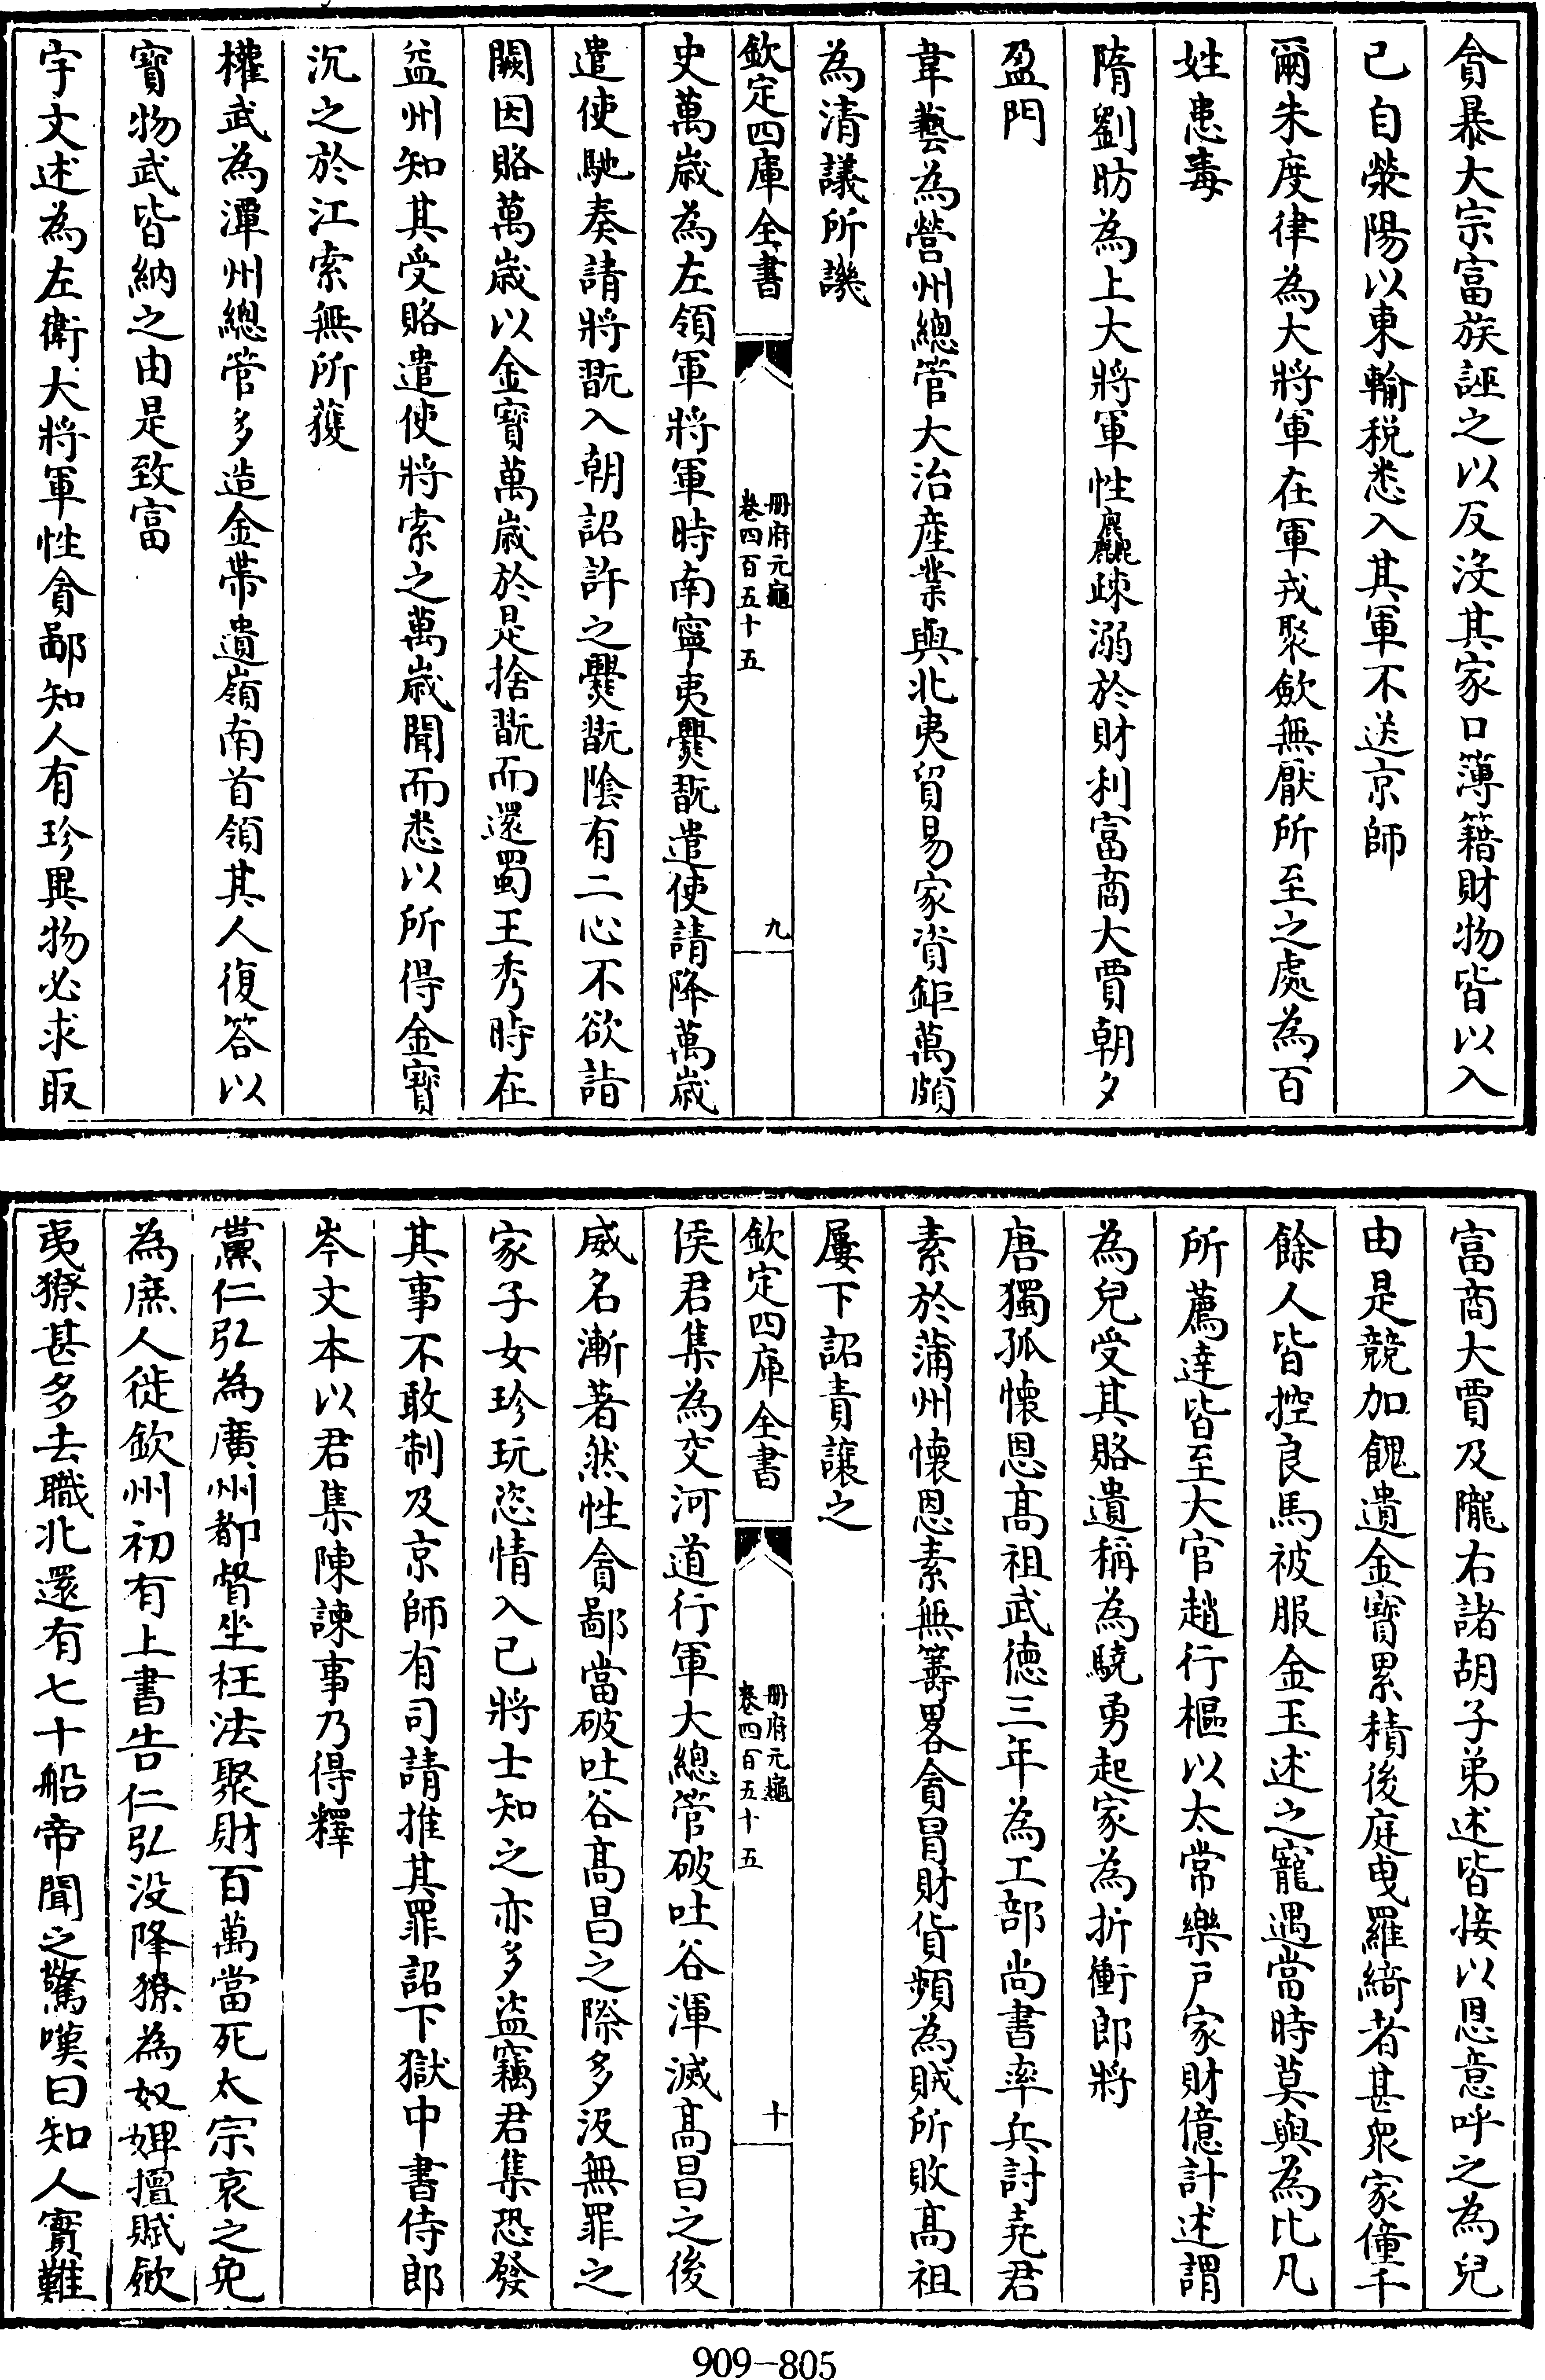 貪暴大宗富族誣之以反沒其家口簿籍財物皆以入
己自滎陽以東輸稅悉入其軍不送京師
爾朱度律為大將軍在軍戎聚斂無厭所至之處為百
姓患毒
隋劉昉為上大將軍性麤疎溺於財利富商大賈朝夕
盈門
韋藝為營州總管大治產業與北夷貿易家資鉅萬頗
為清議所譏
欽定四庫全書
冊府元龜
卷四百五十五
九
史萬歲為左領軍將軍時南寧夷爨翫遣使請降萬歲
遣使馳奏請將翫入朝詔許之爨翫陰有二心不欲詣
闕因賂萬歲以金寶萬歲於是捨翫而還蜀王秀時在
益州知其受賂遣使將索之萬歲聞而悉以所得金寶
沉之於江索無所獲
權武為潭州總管多造金帶遺嶺南首領其人復答以
寶物武皆納之由是致富
宇文述為左衛大將軍性貪鄙知人有珍異物必求取
富商大賈及隴右諸胡子弟述皆接以恩意呼之為兒
由是競加餽遺金寶累積後庭曳羅綺者甚衆家僮千
餘人皆控良馬被服金玉述之寵遇當時莫與為比凡
所薦達皆至大官趙行樞以太常樂戶家財億計述謂
為兒受其賂遺稱為驍勇起家為折衝郎將
唐獨孤懷恩高祖武德三年為工部尚書率兵討堯君
素於蒲州懷恩素無籌畧貪冒財貨頻為賊所敗高祖
屢下詔責讓之
欽定四庫全書
冊府元龜
卷四百五十五
十
侯君集為交河道行軍大總管破吐谷渾滅高昌之後
威名漸著然性貪鄙當破吐谷高昌之際多沒無罪之
家子女珍玩恣情入己將士知之亦多盜竊君集恐發
其事不敢制及京師有司請推其罪詔下獄中書侍郎
岑文本以君集陳諫事乃得釋
黨仁弘為廣州都督坐枉法聚財百萬當死太宗哀之免
為庶人徙欽州初有上書告仁弘沒降獠為奴婢擅賦斂
夷獠甚多去職北還有七十船帝聞之驚嘆曰知人實難
909-805